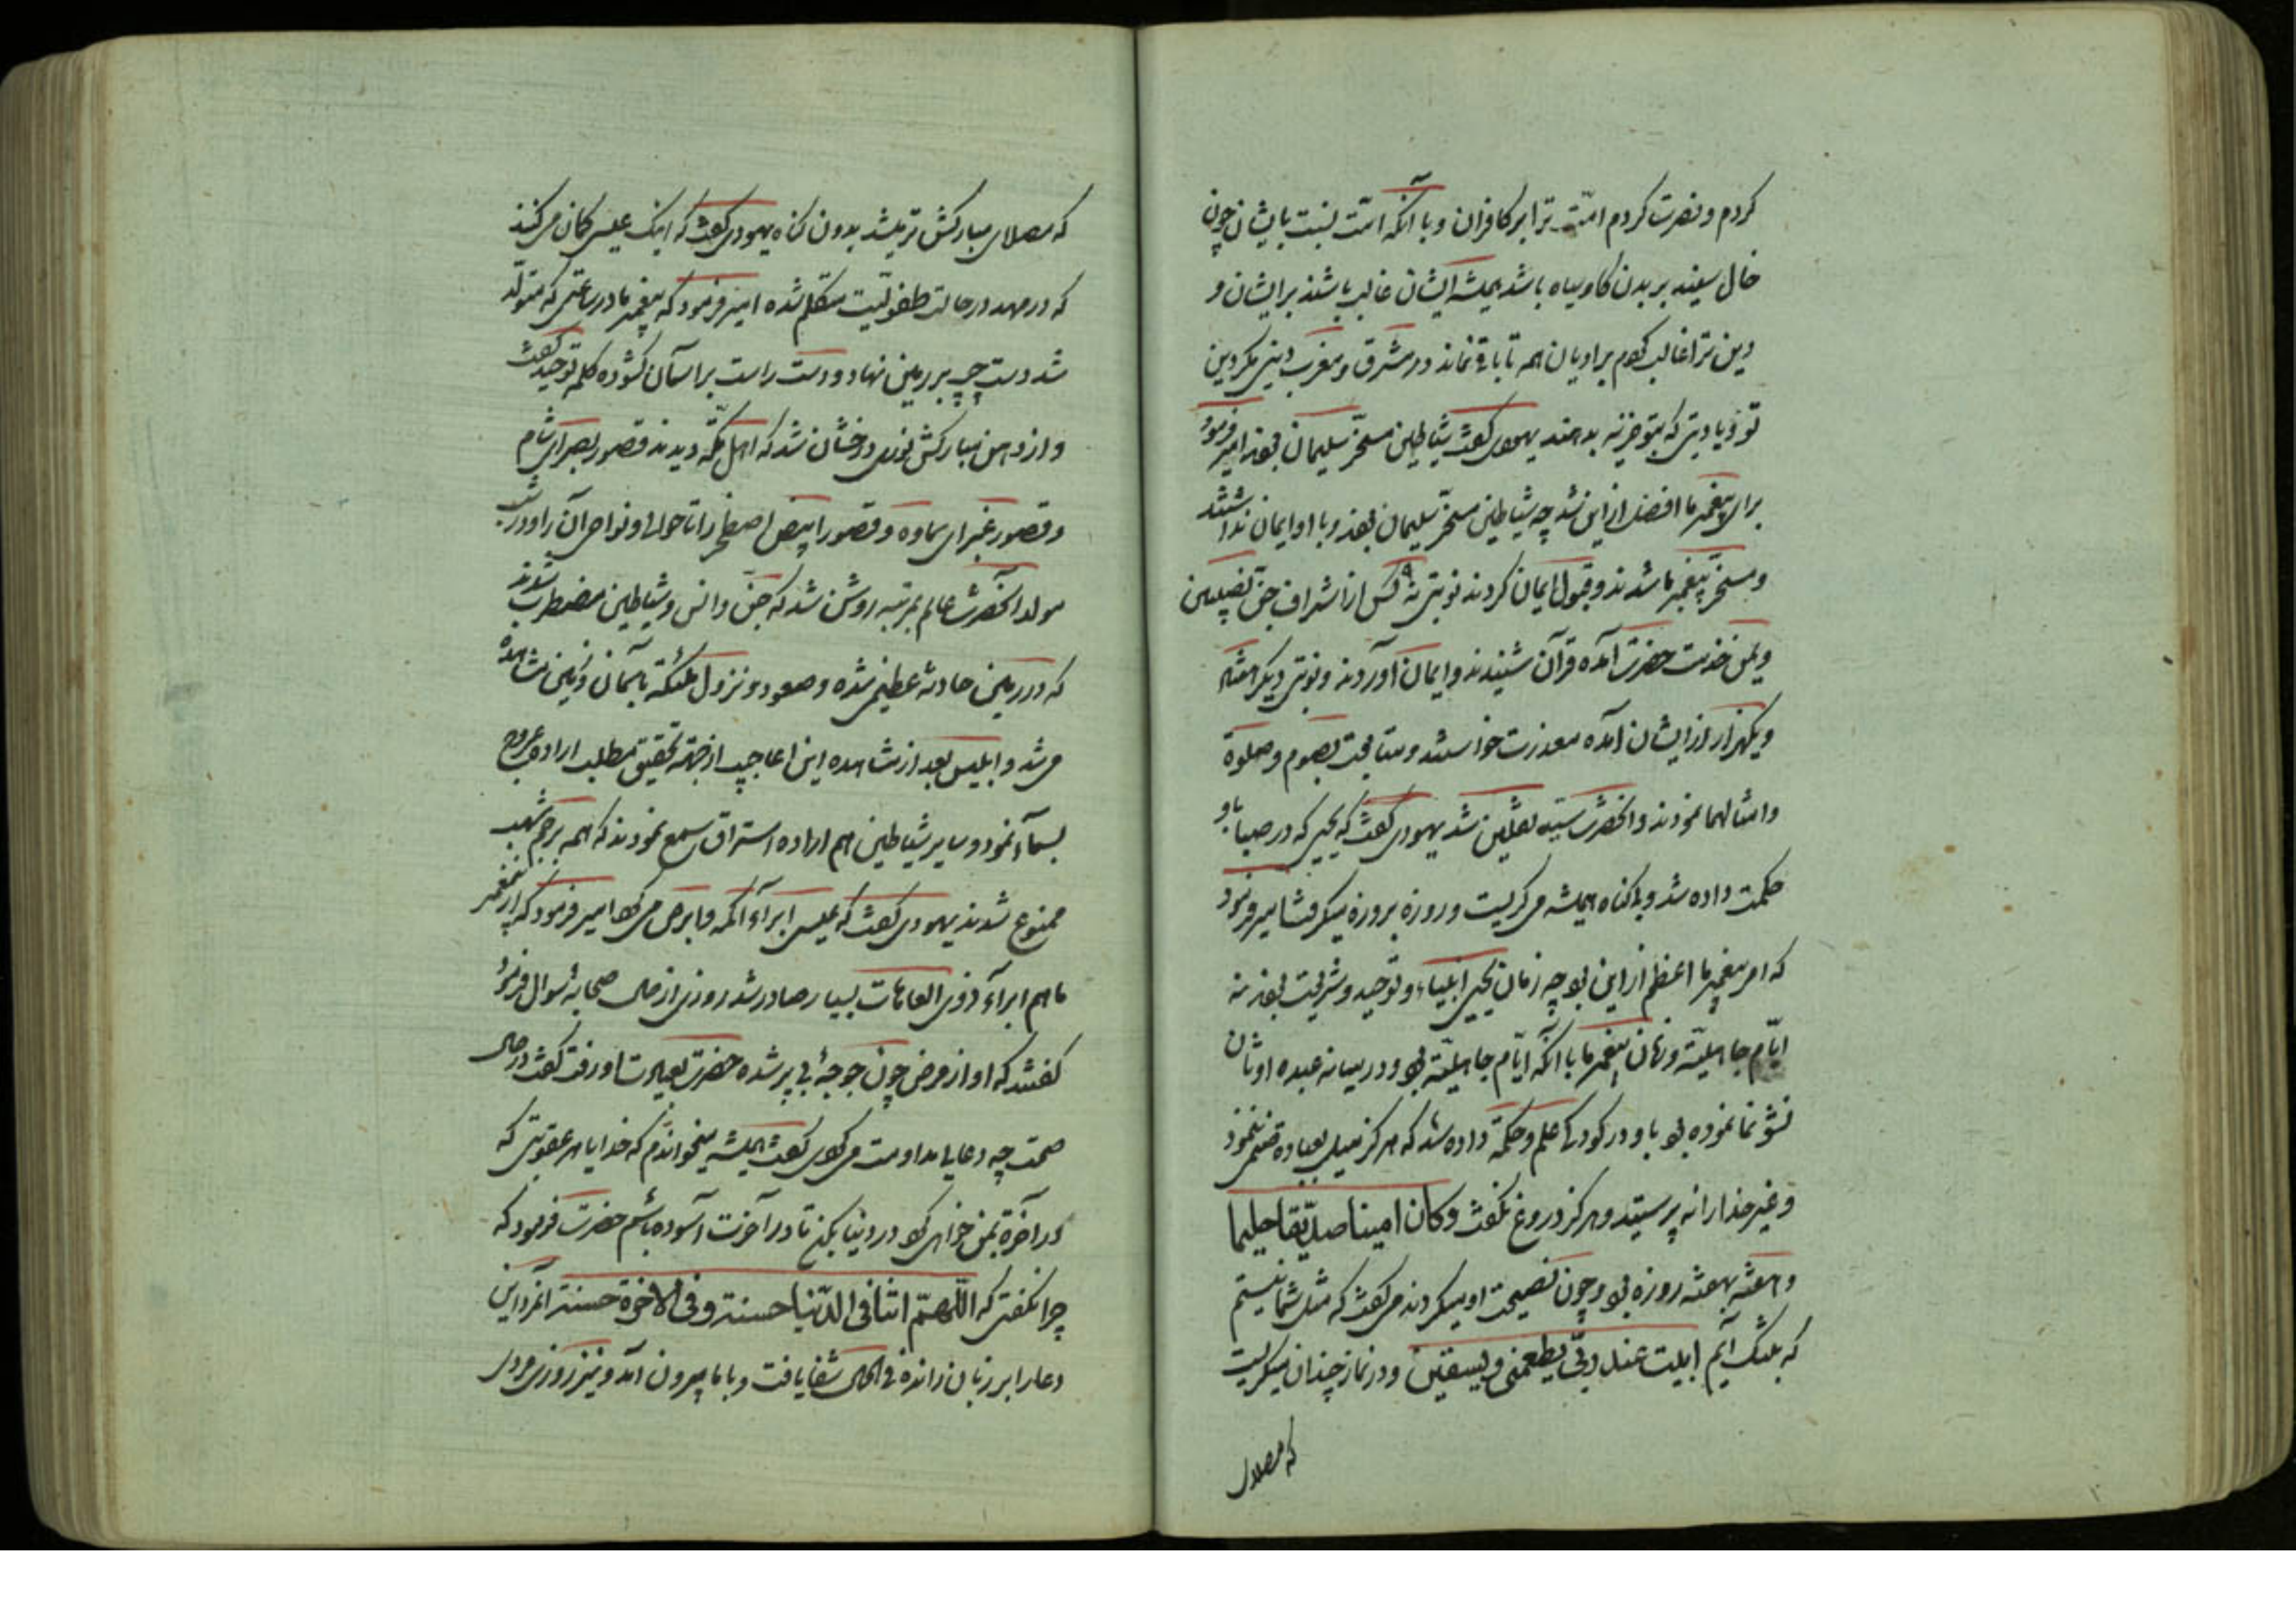 کردم و نصرت کردم امّت ترا بر کافران و با آنکه امّت نسبت بایشان چون
خال سفید بر بدن کاو سیاه باشد همیشه ایشان غالب باشند بر ایشان و
دین ترا غالب کنم بر ادیان همه تا باقی نماند در مشرق و مغرب دینی مکر دین
تو و یا دینی که بتو جزیه بدهند یهودی کفت شیاطین مسخّر سلیمان بودند امیر فرمود
برای پیغمبر ما افضل از این شد چه شیاطین مسخّر سلیمان بودند و با او ایمان نداشتند
و مسخّر پیغمبر ما شدند و قبول ایمان کردند نوبتی نه کس از اشراف جنّ نصیبین
و یمن خدمت حضرت آمده قرآن شنیدند و ایمان آوردند و نوبتی دیکر هفتاد
و یکهزار از ایشان آمده معذرت خواستند و متابعت بصوم و صلوة
و امثالهما نمودند و انحضرت سیّد ثقلین شد یهودی کفت که یحیی که در صبا باو
حکمت داده شد و بی کناه همیشه می کریست و روزه بروزه میکرفت امیر فرمود
که امر پیغمبر ما اعظم از این بود چه زمان یحیی انبیاء و توحید و شریعت بودند نه
ایّام جاهلیّة و زمان پیغمبر ما با آنکه ایّام جاهلیّة بود و در میانه عبده اوثان
نشو نما نموده بود باو در کودکی علم و حکمة داده شد که هرکز میل بعباده صنمی ننمود
و غیر خدا را نه پرستید و هرکز دروغ نکفت وکان امینا صدّیقا حلیما
و هفته بهفته روزه بود و چون نصیحت او میکردند می کفت که مثل شما نیستم
که بتنک آیم ابیت عند ربّی یطعمنی و یسقین و در نماز چندان میکریست
که مصلای
که مصلای مبارکش تر میشد بدون کناه یهودی کفت که اینک عیسی کان می کنند
که در مهد در حالت طفولیّت متکلم شده امیر فرمود که پیغمبر ما در ساعتی که متولّد
شد دست چپ بر زمین نهاد و دست راست بر اسمان کشوده کلمه توحید کفت
و از دهن مبارکش نوری درخشان شد که اهل مکّه دیدند قصور بصرای شام
و قصور غبرای سماوه و قصور ابیض اصطخر را تا حوالی و نواحی آن را و در شب
مولد انحضرت عالم بمرتبه روشن شد که جنّ و انس و شیاطین مضطرب شدند
که در زمین حادثه عظیمی شده و صعود و نزول ملئکة باسمان و زمین مشاهده
می شد و ابلیس بعد از مشاهده این اعاجیب از جهة تحقیق مطلب اراده عروج
بسمآء نمود و سایر شیاطین هم اراده استراق سمع نمودند که همه برجم شهب
ممنوع شدند یهودی کفت که عیسی ابرآء اکمه و ابرص می کرد امیر فرمود که از پیغمبر
ما هم ابرآء ذوی العاهات بسیار صادر شد روزی از حال صحابة سوال فرمود
کفتند که او از مرض چون جوجۀ بی پر شده حضرت بعیادت او رفت کفت در حال
صحت چه دعا یا مداومت می کردی کفت همیشه میخواندم که خدایا هر عقوبتی که
در اخرة بمن خواهی کرد در دنیا بکن تا در آخرت آسوده باشم حضرت فرمود که
چرا نکفتی که اللّهمّ اتنا فی الدّنیا حسنة و فی الاخرة حسنة انمرد این
دعا را بر زبان رانده فی الحال شفا یافت و با ما بیرون آمد و نیز روزی مردی